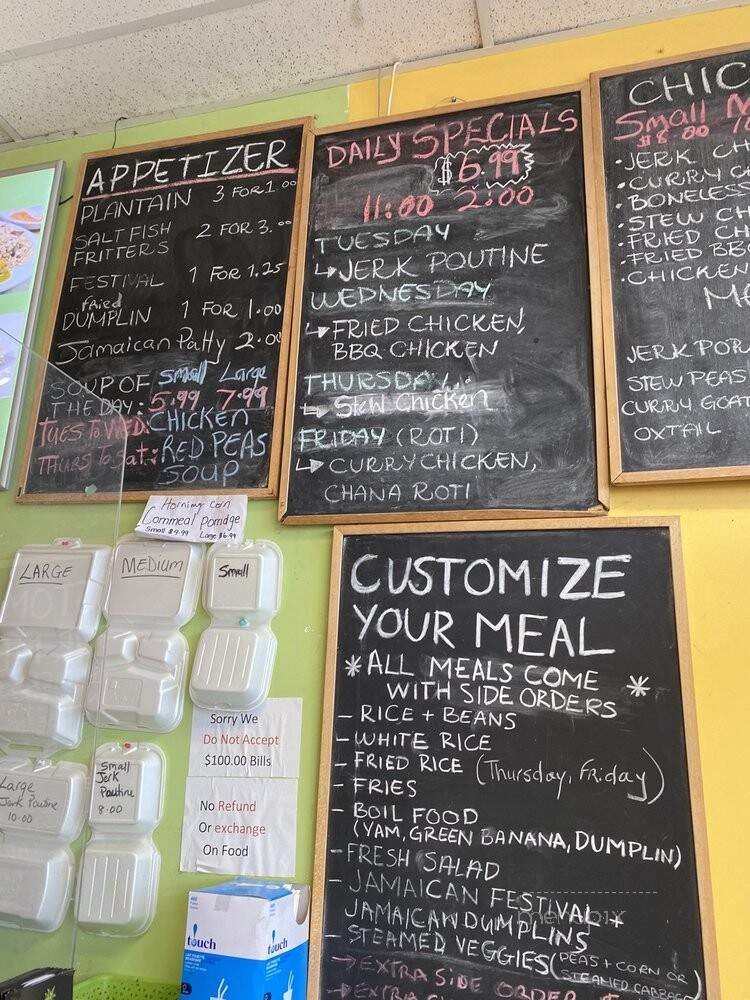 APPETIZER
PLANTAIN 3 FOR 1.00
SALTFISH
FRITTERS 2 FOR 3.00
FESTIVAL 1 FOR 1.25
fried
DUMPLIN 1 FOR 1.00
Jamaican Patty 2.00
SOUP OF Small Large
THE DAY: 5.99 7.99
TUES TO WED: CHICKEN
THURS TO Sat: RED PEAS
SOUP
DAILY SPECIALS
$6.99
11:00 2:00
TUESDAY
JERK POUTINE
WEDNESDAY
FRIED CHICKEN,
BBQ CHICKEN
THURSDAY...
Stew Chicken
FRIDAY (ROTI)
CURRY CHICKEN,
CHANA ROTI
CHIC
Small M
$8.00
• JERK CH
• CURRY C
• BONELESS
• STEW CH
• FRIED CH
• FRIED BB
• CHICKEN
JERK POR
STEW PEAS
CURRY GOAT
OXTAIL
Corn
Cornmeal Porridge
Small Large
LARGE
MEDIUM
Small
Large
Jerk Poutine
10.00
Small
Jerk
Poutine
8.00
Sorry We
Do Not Accept
$100.00 Bills
No Refund
Or exchange
On Food
touch
touch
CUSTOMIZE
YOUR MEAL
* ALL MEALS COME
WITH SIDE ORDERS *
- RICE + BEANS
- WHITE RICE
- FRIED RICE (Thursday, Friday)
- FRIES
- BOIL FOOD
(YAM, GREEN BANANA, DUMPLIN)
- FRESH SALAD
- JAMAICAN FESTIVAL +
JAMAICAN DUMPLINS
- STEAMED VEGGIES (PEAS + CORN OR
STEAMED
EXTRA SIDE ORDER